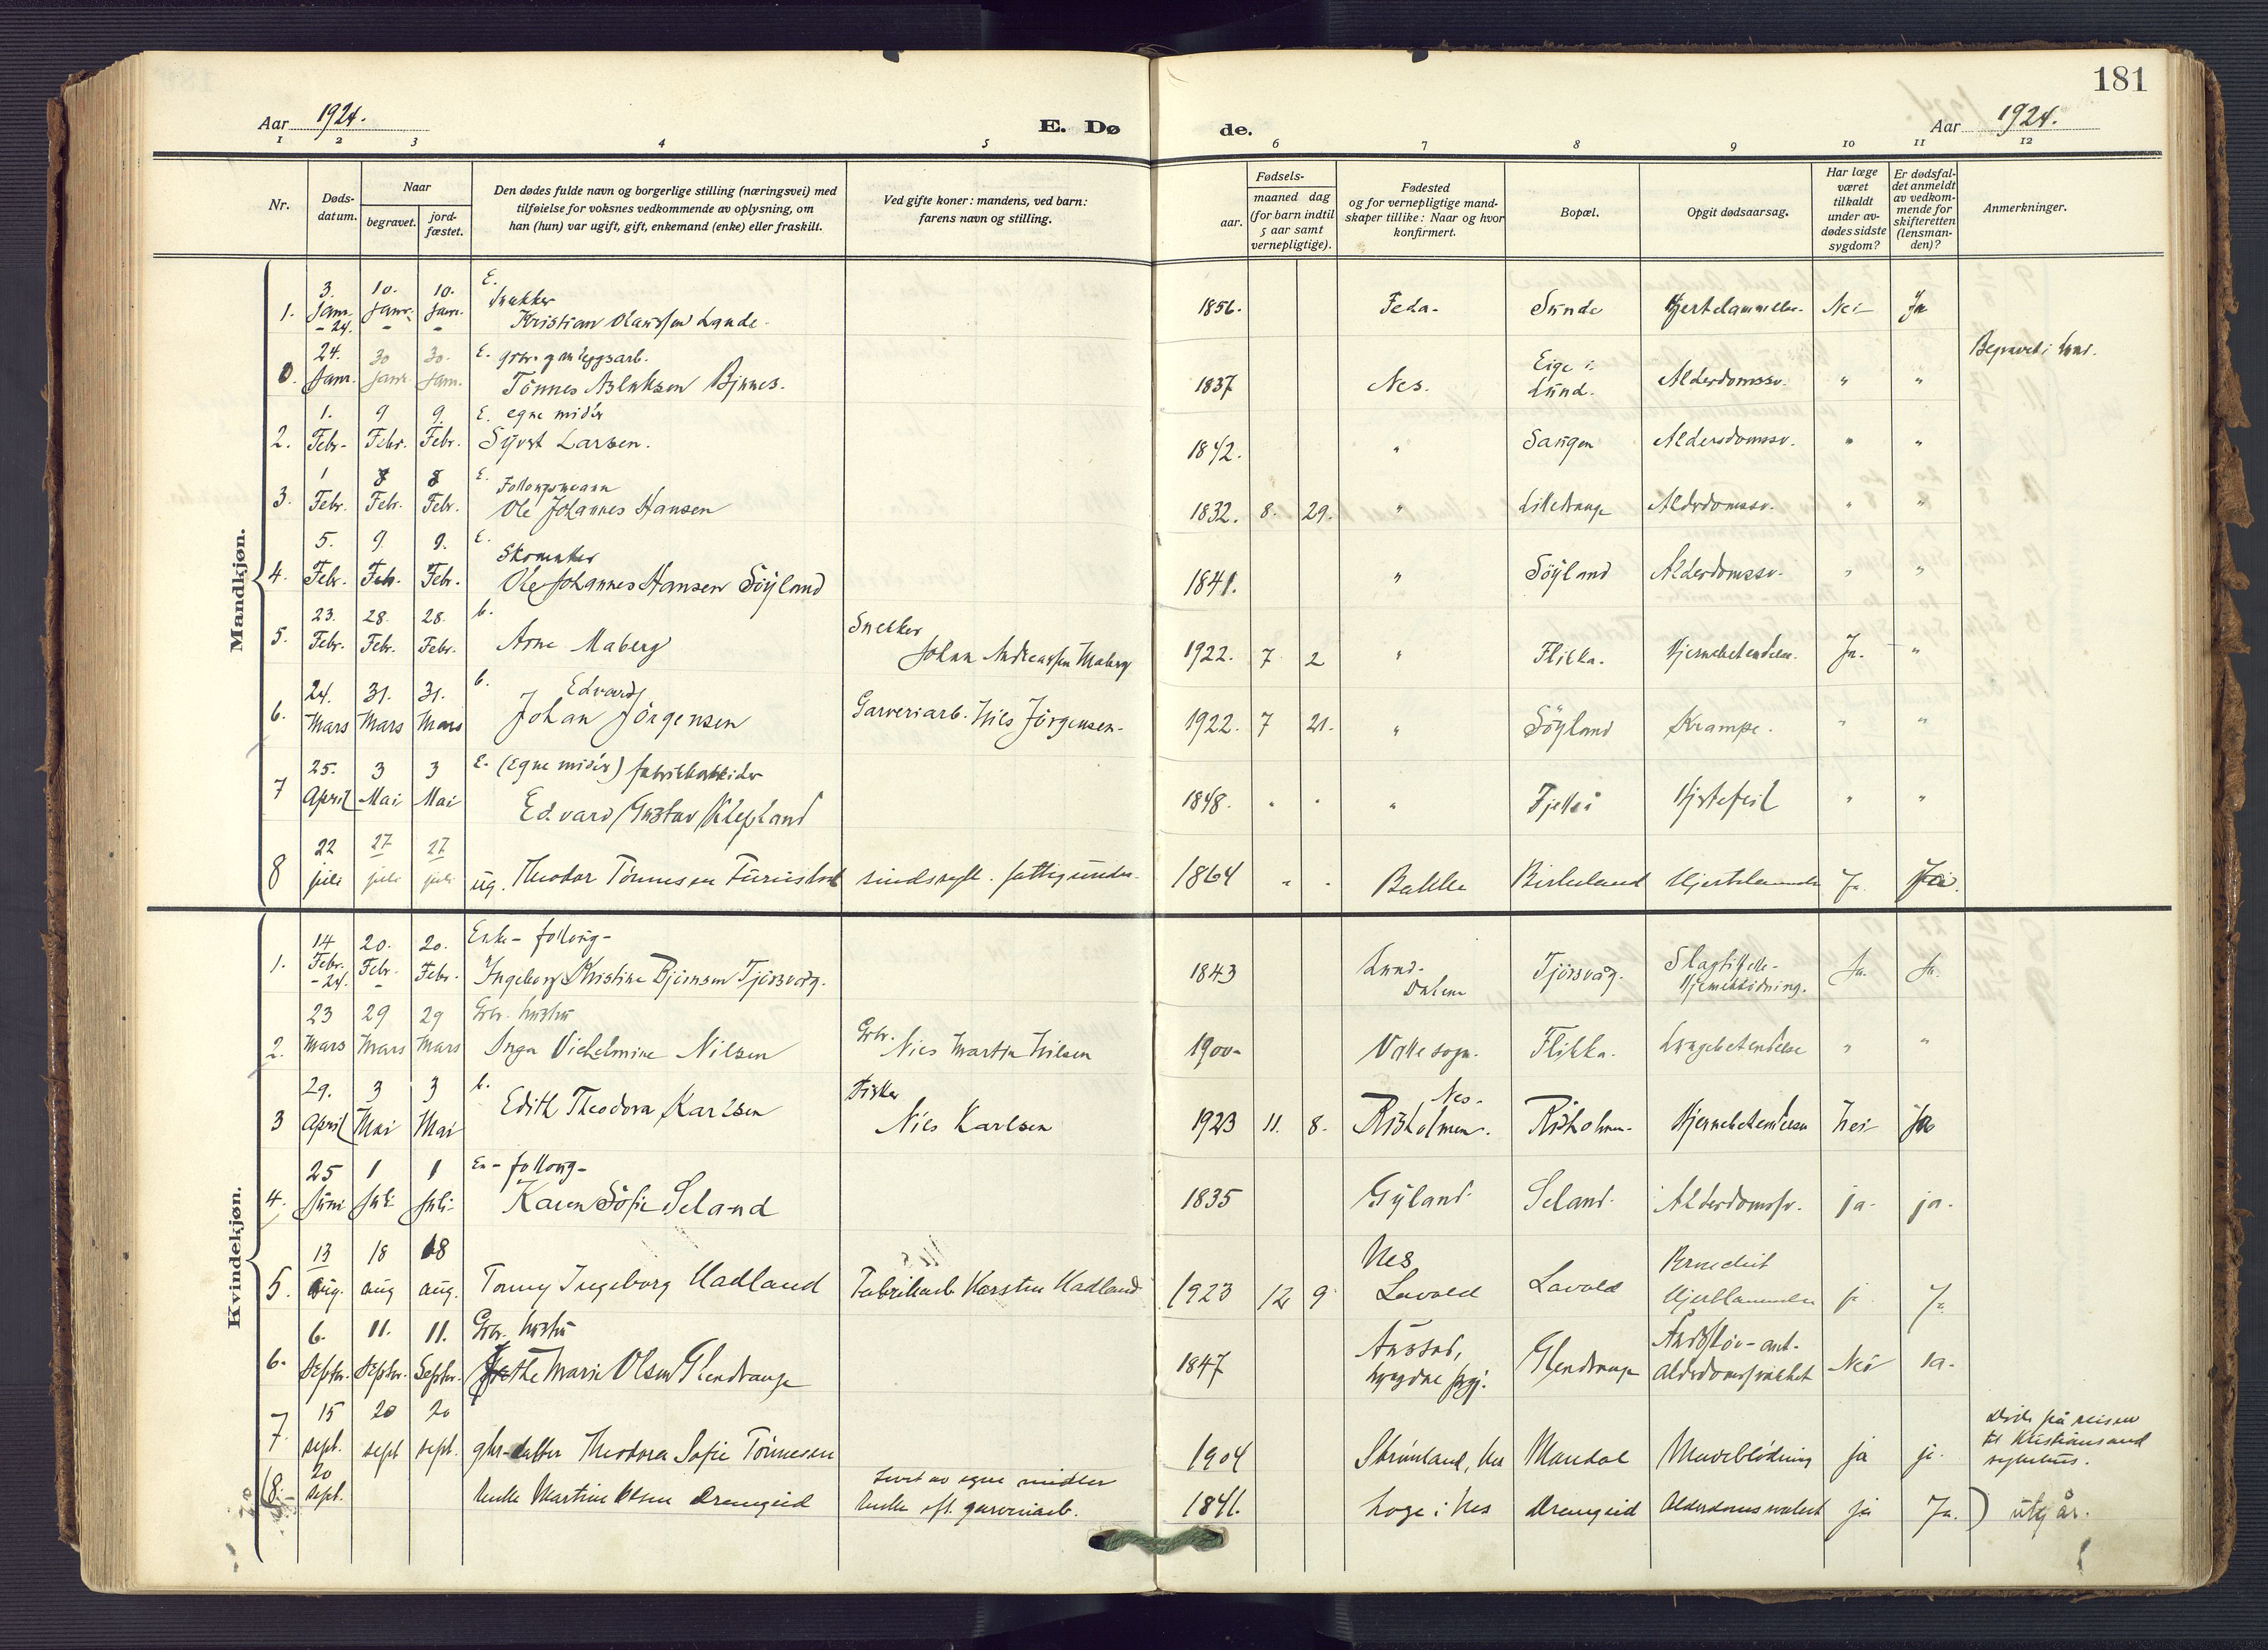 181
Aar 1924.
E. Dø
de.
Aar 1924.
1 2 3 4 5 6 7 8 9 10 11 12
Nr.
Døds-
datum.
Naar
begravet.
jord-
fæstet.
Den dødes fulde navn og borgerlige stilling (næringsvei) med
tilføielse for voksnes vedkommende av oplysning, om
han (hun) var ugift, gift, enkemand (enke) eller fraskilt.
Ved gifte koner: mandens, ved barn:
farens navn og stilling.
Fødsels-
aar.
maaned dag
(for barn indtil
5 aar samt
vernepligtige).
Fødested
og for vernepligtige mand-
skaper tillike: Naar og hvor
konfirmert.
Bopæl.
Opgit dødsaarsag.
Har læge
været
tilkaldt
under av-
dødes sidste
sygdom?
Er dødsfal-
det anmeldt
av vedkom-
mende for
skifteretten
(lensman-
den)?
Anmerkninger.
Mandkjøn.
1. 3. Janr. - 24. 10. Janr. 10. Janr. E. Snekker Kristian Olaussen Lande. 1856. Feda. Sunde Hjertelammelse. Nei Ja
0. 24. Janr. 30 Janr. 30. Janr. E. Tønnes Aslaksen Bjnnes. 1837 Nes. Eige i Lund. Alderdomssv. " " Begravet i Lund.
2. 1. Febr. 9 Febr. 9. Febr. E. egne midler Syvert Larsen. 1842. " Saugen Alderdomssv. " "
3. 1 Febr. 8 Febr. 8 Febr. E. Follaugsmann Ole Johannes Hansen 1832. 8. 29. " Lilledrange Alderdomssv. " "
4. 5. Febr. 9. Febr. 9. Febr. E. Skomaker Ole Johannes Hansen Söyland 1841. " Söyland Alderdomssv. " "
5. 23. Febr. 28. Febr. 28. Febr. b. Arne Maberg Snekker Johan Andreassen Maberg 1922. 7 2 " Flikka. Hjernebetendelse. Ja. "
6. 24. Mars 31. Mars 31. Mars b. Johan Edvard Jörgensen Garveriarb. Nils Jörgensen. 1922. 7 21. " Söyland Krampe. " "
7 25. April 3 Mai 3 Mai E. (Egne midler) fabrikkarbeider Edvard Gustav Klepland 1848. " " " Fjellså Hjertefeil " "
8 22 juli 27 juli 27 juli ug. Theodor Tønnesen sindssyk. fattigunder. 1864 " " Bakke Birkeland Hjertelammelse Ja.
Kvindekjøn.
1. 14 Febr. - 24. 20. Febr. 20. Febr. Enke - follaug - Ingeborg Kristine Bjørnsen Tjørsvaag. 1843 Lund. Dalene Tjørsvåg. Slagtilfelle - Hjerneblødning. Ja. Ja.
2. 23 Mars 29 Mars 29 Mars Gbr. hustru Inga Vilhelmine Nilsen Gbr. Nils Martin Nilsen 1900 Valle sogn. Flikka. Lungebetendelse " "
3 29. April 3 Mai 3 Mai b. Edith Theodora Karlsen Fisker Nils Karlsen 1923 11. 8. Nes. Risholmen. Risholmen. Hjernebetendelse Nei Ja
4. 25 Juni 1 Juli 1 Juli En - follaug - Karen Sofie Seland 1835 Gyland Seland Alderdomssv. ja. ja.
5. 13 aug. 18 aug 18 aug. Tonny Ingeborg Hadland Fabrikarb. Karsten Hadland 1923 12 9 Nes Lavold Lavold Hjertelammelse ja Ja
6. 6. Septbr. 11. Septbr. 11. Septbr. Gbr. hustru Marie Olsen Glendrange 1847 Lyngdal prgj. Glendrange Alderdomssvakhet Nei ja.
7. 15 sept. 20 sept 20 sept. gbr-datter Theodora Sofie Tönnesen 1904 Skrømland, Nes Mandal Maveblödning ja ja. Döde på reisen til Kristiansand sykehus.
8. 20 sept. Enke Martine Olsen Drangeid Levet av egne midler Enke eft. garveriarb. 1841. Loge i Nes Drangeid Alderdomssvakhet ja Ja. ) utgår.